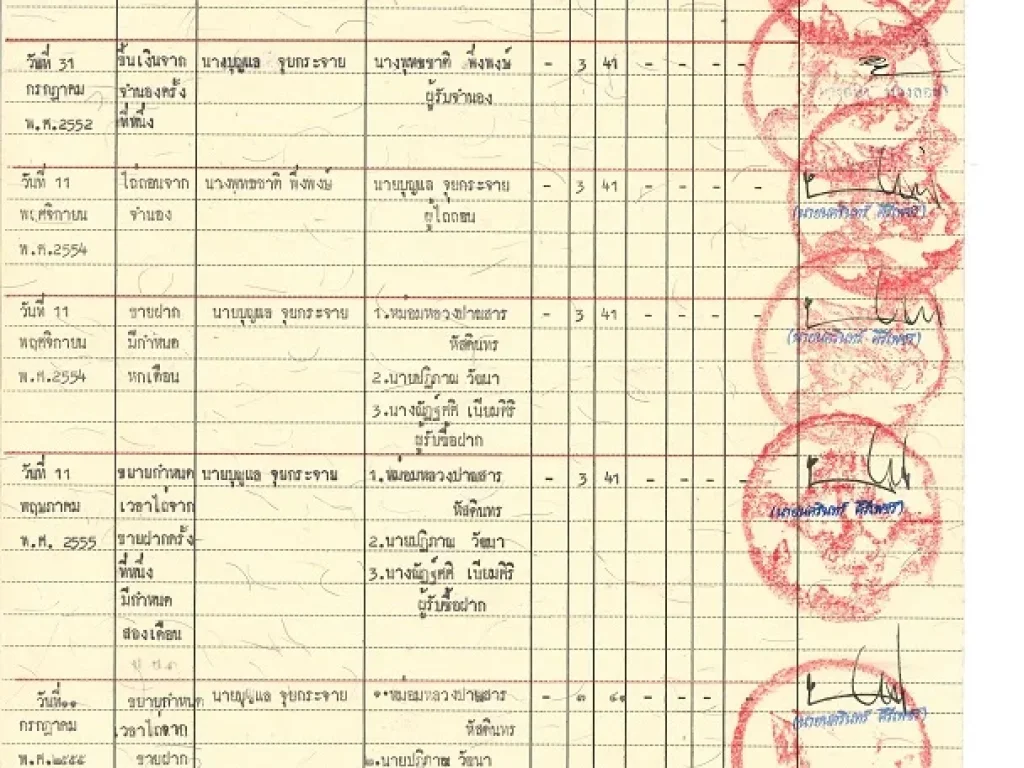 วันที่ 31 ขึ้นเงินจาก นางบุญแล จุยกระจาย นางพุทธชาติ พึ่งพงษ์ - 3 41 - - - -
กรกฎาคม จำนองครั้ง ผู้รับจำนอง
พ.ศ.2552 ที่หนึ่ง
วันที่ 11 ไถ่ถอนจาก นางพุทธชาติ พึ่งพงษ์ นายบุญแล จุยกระจาย - 3 41 - - - -
พฤศจิกายน จำนอง ผู้ไถ่ถอน (นายนครินทร์ ศิริเพชร)
พ.ศ.2554
วันที่ 11 ขายฝาก นายบุญแล จุยกระจาย 1.หม่อมหลวงปาณสาร - 3 41 - - - -
พฤศจิกายน มีกำหนด หัสดินทร (นายนครินทร์ ศิริเพชร)
พ.ศ.2554 หกเดือน 2.นายปฏิภาณ วัฒนา
3.นางณัฏฐ์ศศิ เนียมศิริ
ผู้รับซื้อฝาก
วันที่ 11 ขยายกำหนด นายบุญแล จุยกระจาย 1.หม่อมหลวงปาณสาร - 3 41 - - - -
พฤษภาคม เวลาไถ่จาก หัสดินทร (นายนครินทร์ ศิริเพชร)
พ.ศ. 2555 ขายฝากครั้ง 2.นายปฏิภาณ วัฒนา
ที่หนึ่ง 3.นางณัฏฐ์ศศิ เนียมศิริ
มีกำหนด ผู้รับซื้อฝาก
สองเดือน
วันที่๑๑ ขยายกำหนด นายบุญแล จุยกระจาย ๑.หม่อมหลวงปาณสาร - ๓ ๔๑ - - - -
กรกฎาคม เวลาไถ่จาก หัสดินทร (นายนครินทร์ ศิริเพชร)
พ.ศ.๒๕๕๕ ขายฝาก ๒.นายปฏิภาณ วัฒนา